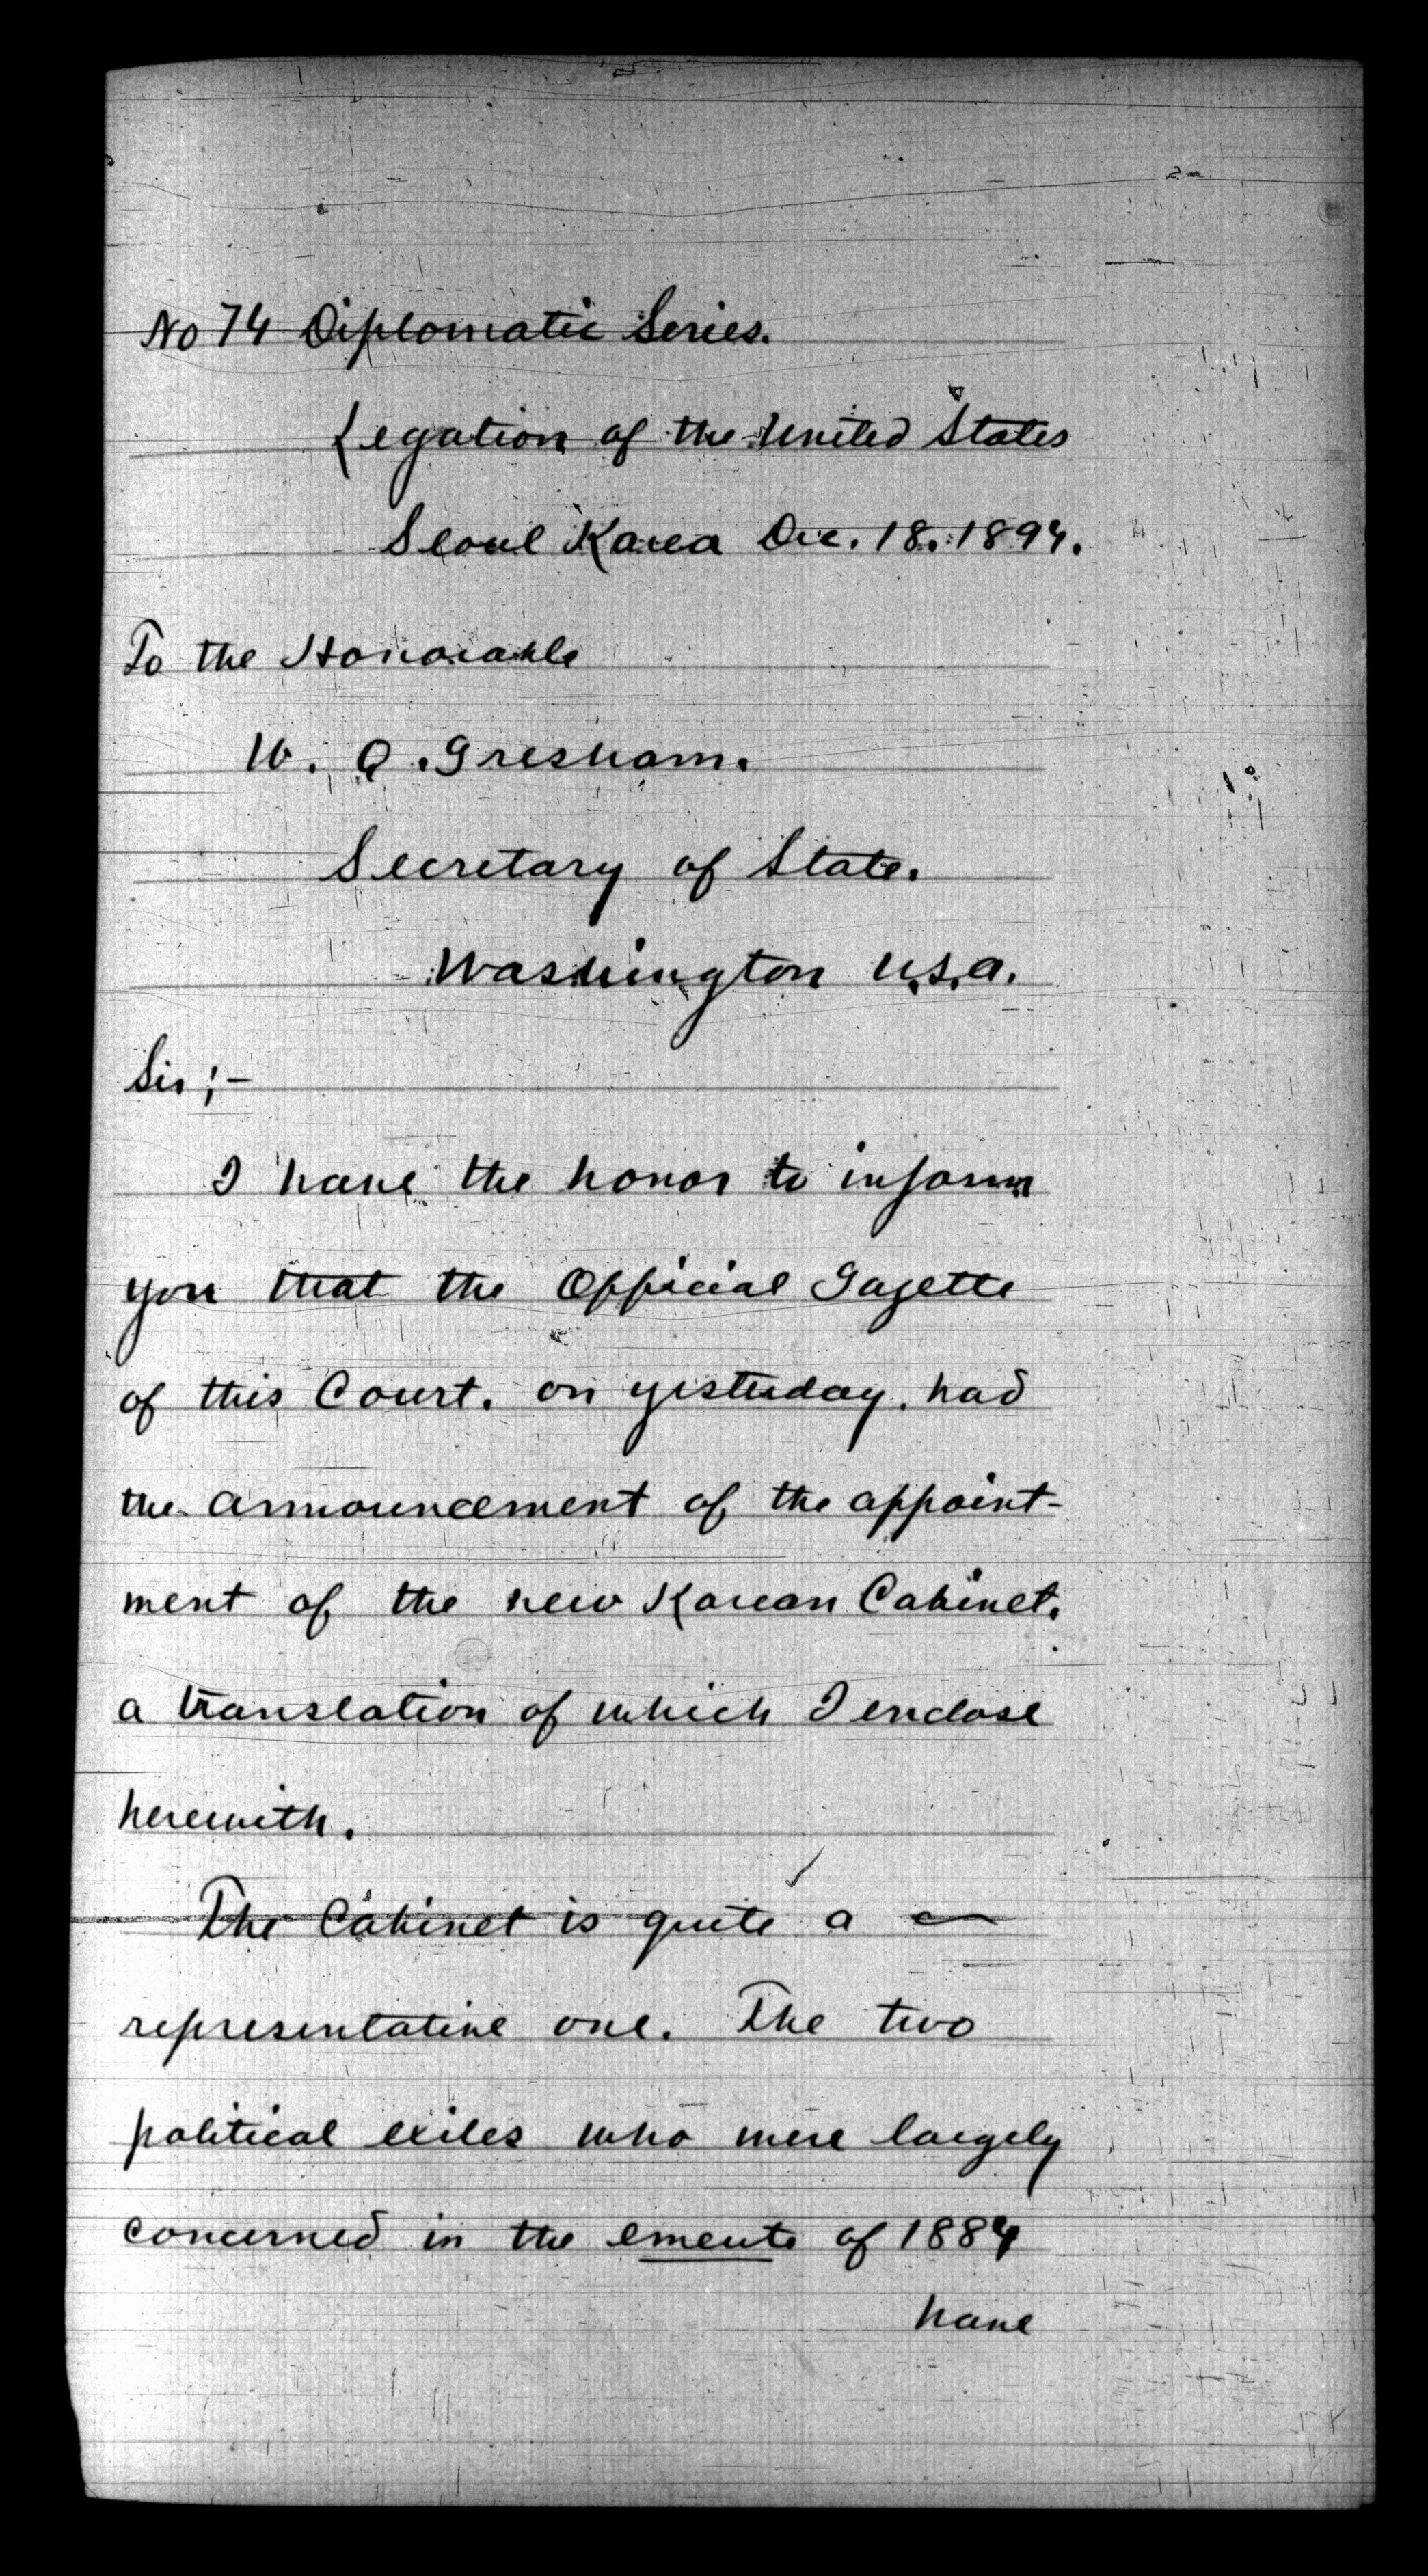 No 74 Diplomatic Series.
Legation of the United States
Seoul Korea Dec. 18. 1894.
To the Honorable
W. Q. Gresham.
Secretary of State.
Washington U.S.A.
Sir;-
I have the honor to inform
you that the Official Gazette
of this Court. on yesterday. had
the announcement of the appoint-
ment of the new Korean Cabinet.
a translation of which I enclose
herewith.
The Cabinet is quite a
representative one. The two
political exiles who were largely
concerned in the emeute of 1884
have